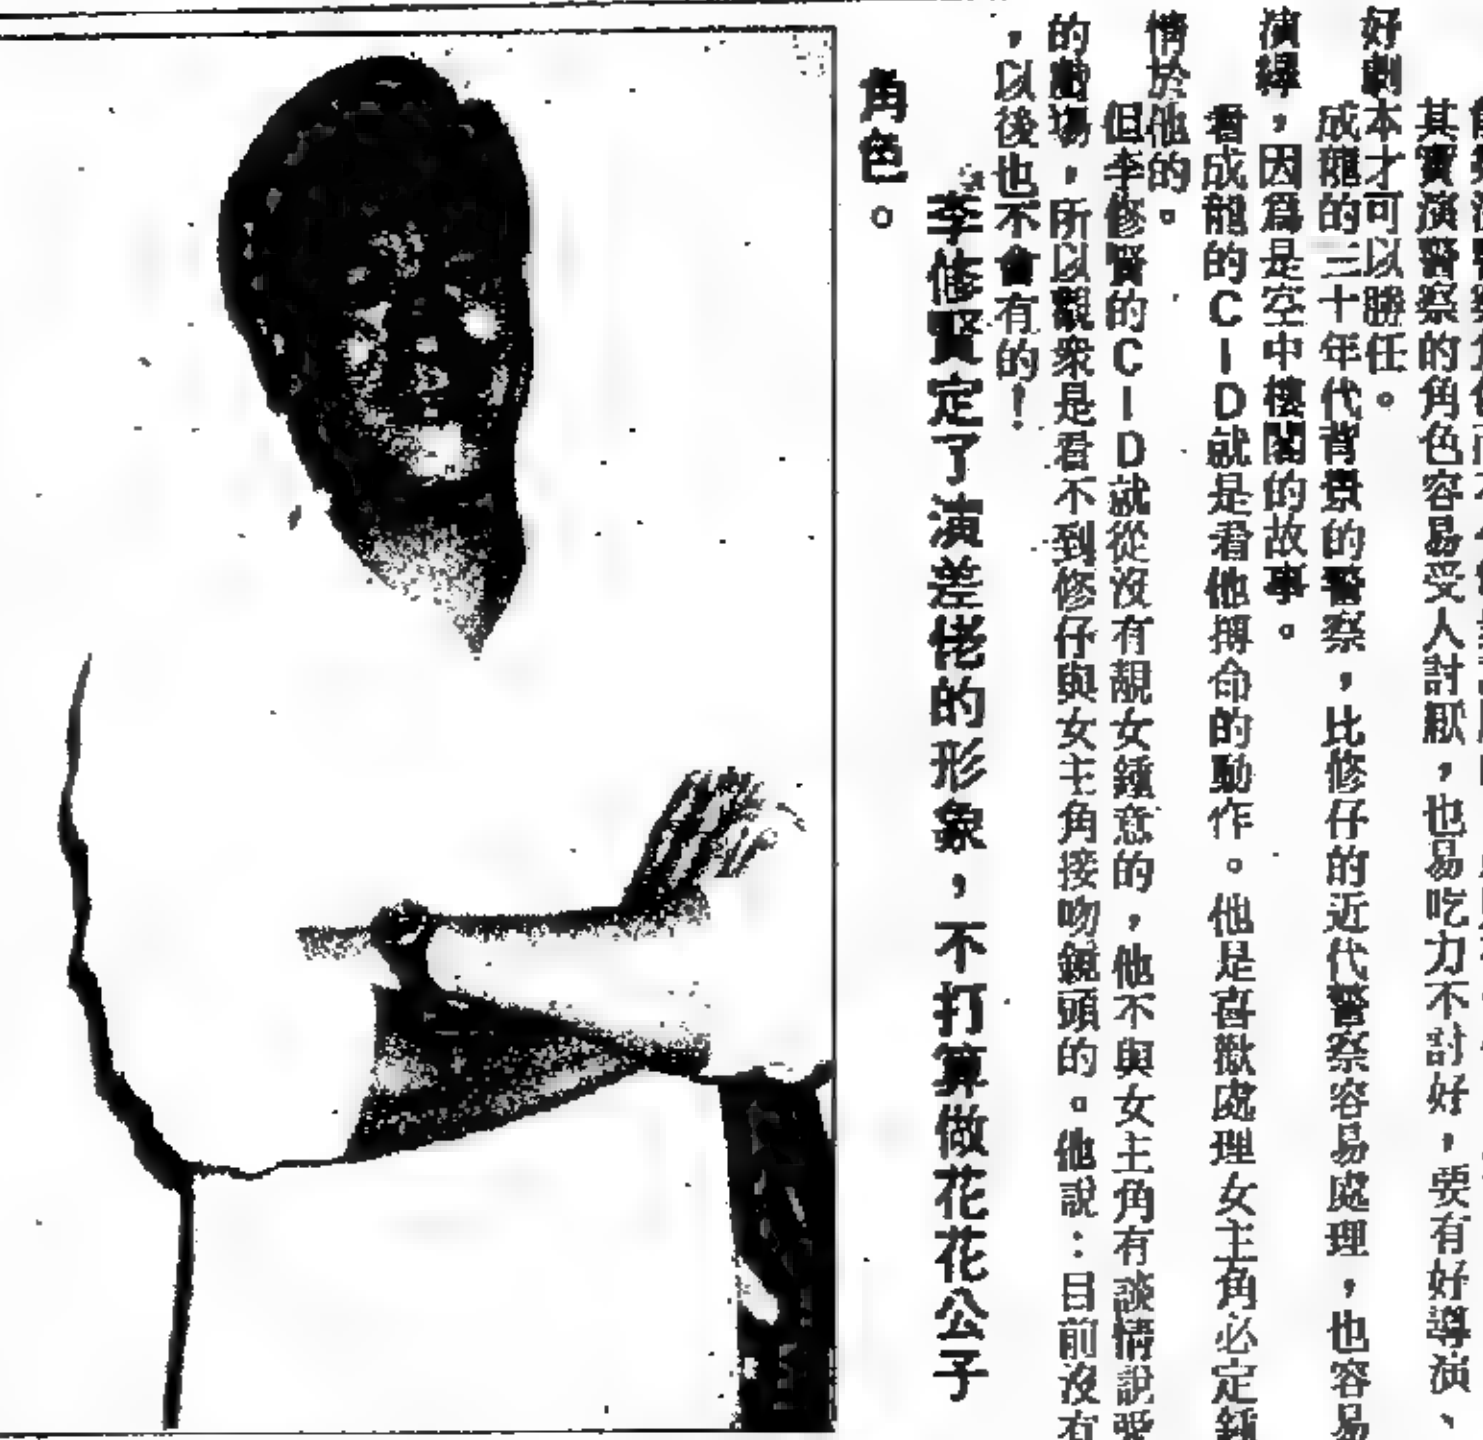 其實演警察的角色容易受人討厭，也易吃力不討好，要有好導演、
好劇本才可以勝任。
成龍的三十年代背景的警察，比修仔的近代警察容易處理，也容易
演繹，因爲是空中樓閣的故事。
看成龍的CID就是看他搏命的動作。他是喜歡處理女主角必定鍾
情於他的。
但李修賢的CID就從沒有靚女鍾意的，他不與女主角有談情說愛
的戲場，所以觀衆是看不到修仔與女主角接吻鏡頭的。他說：目前沒有
，以後也不會有的！
李修賢定了演差佬的形象，不打算做花花公子
角色。